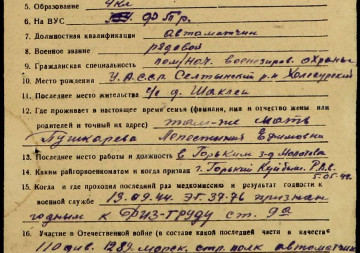 5. Образование 4 кл
6. На ВУС
7. Должностная квалификации автоматчик
8. Военное звание рядовой
9. Гражданская специальность пом/нач. военизиров. охраны
10. Место рождения У.А.С.С.Р. Селтынский р-н
11. Последнее место жительства
12. Где проживает в настоящее время семья (фамилия, имя и отчество жены или
родителей и точный их адрес) там-же мать
Пушкарева Ефимовна
13. Последнее место работы и должность г. Горький з-д Молотова
14. Каким райгорвоенкоматом и когда призван г. Горький Куйбыш. Р.В.К.
5.05.42
15. Когда и где проходил последний раз медкомиссию и результат годности к
военной службе 19.09.44. ЭГ. 3776 признан
годным к физ-труду ст.
16. Участие в Отечественной войне (в составе какой последней части в качестве
110 див. 1289 стр. полк автоматчик